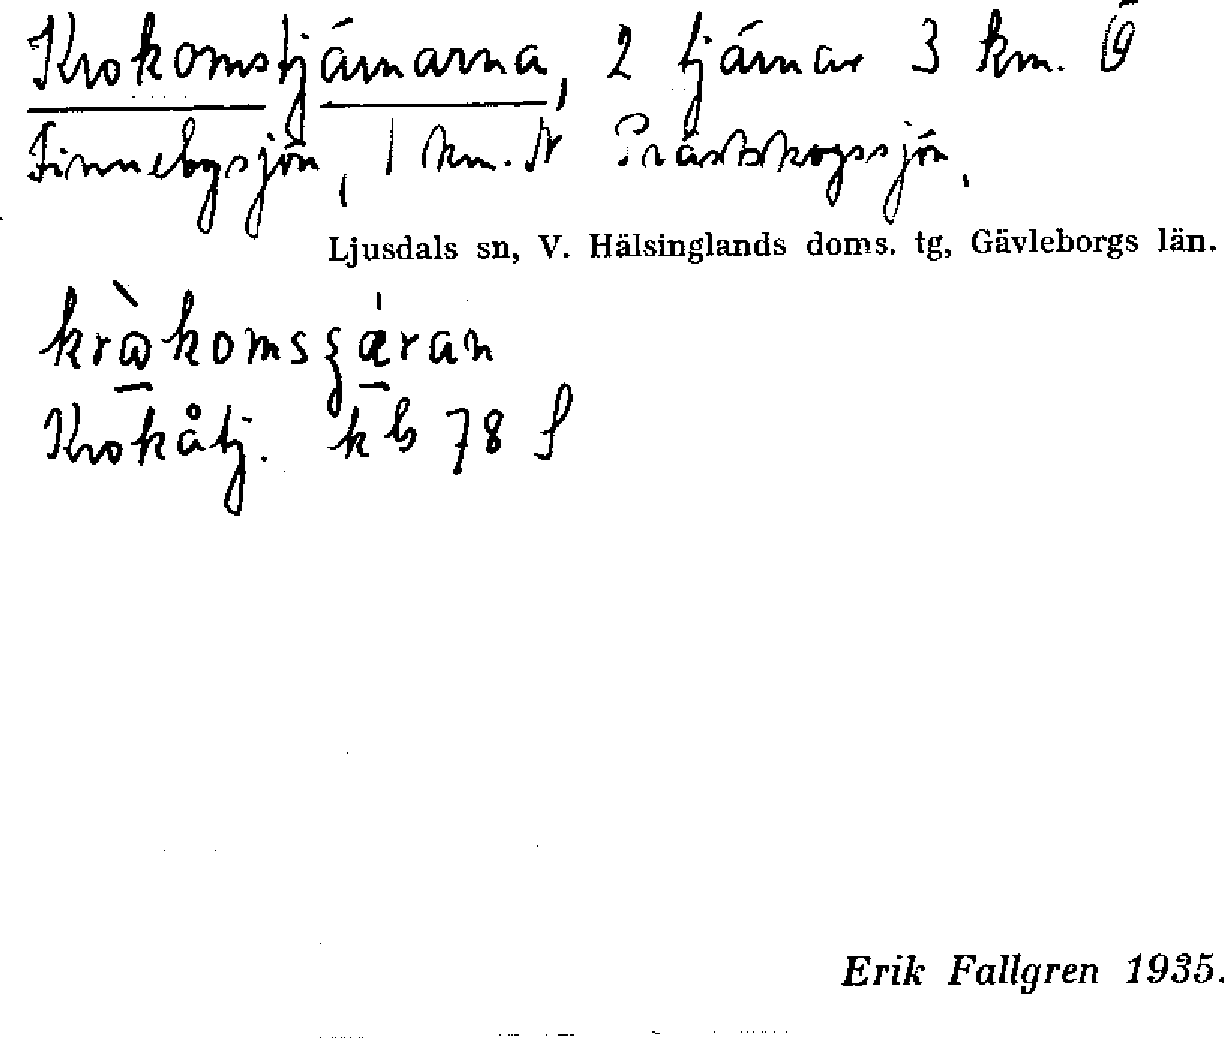 Krokomstjärnarna, 2 tjärnar 3 km. Ö
Finnebysjön, 1 km. N Prästskogssjön.
Ljusdals sn, V. Hälsinglands doms. tg, Gävleborgs län.
krò̠komsʒǽ̠ran
Krokåtj. kb 78 S
Erik Fallgren 1935.